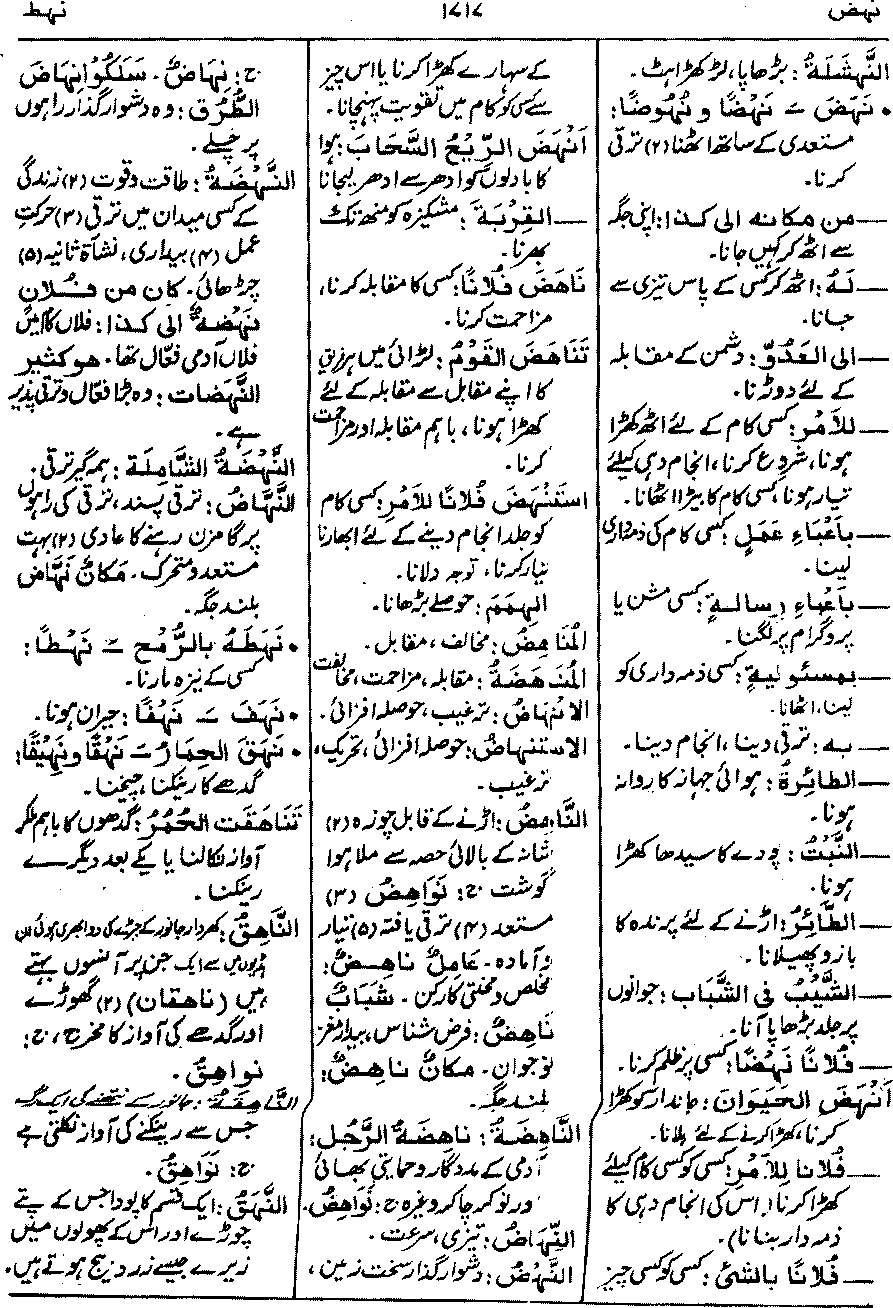 نهض
۱۷۱۷
نهط
النَّهْشَلَةُ: بڑھاپا، لڑکھڑاہٹ۔
• نَهَضَ ـَ نَهْضًا و نُهُوضًا:
مستعدی کے ساتھ اٹھنا (۲) ترقی
کرنا۔
— من مکانه الی کذا: اپنی جگہ
سے اٹھ کر کہیں جانا۔
— لَهُ: اٹھ کر کسی کے پاس تیزی سے
جانا۔
— الی العَدُوِّ: دشمن کے مقابلہ
کے لئے دوڑنا۔
— للاَمْرِ: کسی کام کے لئے اٹھ کھڑا
ہونا، شروع کرنا، انجام دہی کیلئے
تیار ہونا، کسی کام کا بیڑا اٹھانا۔
— بِاَعْبَاءِ عَمَلٍ: کسی کام کی ذمہ داری
لینا۔
— بِاَعْبَاءِ رِسالةٍ: کسی مشن یا
پروگرام پر لگنا۔
— بمسئولیةٍ: کسی ذمہ داری کو
لینا، اٹھانا۔
— بهِ: ترقی دینا، انجام دینا۔
— الطائِرةُ: ہوائی جہاز کا روانہ
ہونا۔
— النَّبْتُ: پودے کا سیدھا کھڑا
ہونا۔
— الطَّائِرُ: اڑنے کے لئے پرندہ کا
بازو پھیلانا۔
— الشَّیْبُ فی الشَّبَاب: جوانوں
پر جلد بڑھاپا آنا۔
— فُلانًا نَهْضًا: کسی پر ظلم کرنا۔
اَنْهَضَ الحَیَوَانَ: جاندار کو کھڑا
کرنا، کھڑا کرنے کے لئے ہلانا۔
— فُلانا لِلاَمْرِ: کسی کو کسی کام کیلئے
کھڑا کرنا (اس کی انجام دہی کا
ذمہ دار بنانا)۔
— فُلانًا بالشئ: کسی کو کسی چیز
کے سہارے کھڑا کرنا یا اس چیز
سے کسی کو کام میں تقویت پہنچانا۔
اَنْهَضَ الرِّیْحُ السَّحَابَ: ہوا
کا بادلوں کو ادھر سے ادھر لیجانا
— القِرْبَةَ: مشکیزہ کو منھ تک
بھرنا۔
نَاهَضَ فُلانًا: کسی کا مقابلہ کرنا،
مزاحمت کرنا۔
تَنَاهَضَ القَوْمُ: لڑائی میں ہر فریق
کا اپنے مقابل سے مقابلہ کے لئے
کھڑا ہونا، باہم مقابلہ اور مزاحمت
کرنا۔
اسْتَنْهَضَ فُلانًا للاَمْرِ: کسی کام
کو جلد انجام دینے کے لئے ابھارنا
تیار کرنا، توجہ دلانا۔
الهِمَمَ: حوصلے بڑھانا۔
المُنَاهِضُ: مخالف، مقابل۔
المُنَاهَضَةُ: مقابلہ، مزاحمت، مخالفت
الانْهَاضُ: ترغیب، حوصلہ افزائی۔
الاسْتنْهاضُ: حوصلہ افزائی، تحریک،
ترغیب۔
النَّاهِضُ: اڑنے کے قابل چوزہ (۲)
شانہ کے بالائی حصہ سے ملا ہوا
گوشت ج: نَوَاهِضُ (۳)
مستعد (۴) ترقی یافتہ (۵) تیار
و آمادہ۔ عَامِلٌ ناهِضٌ:
مخلص و محنتی کارکن۔ شَبَابٌ
نَاهِضٌ: فرض شناس، بیدار مغز
نوجوان۔ مکانٌ ناهِضٌ:
بلند جگہ۔
النَّاهِضَةُ: ناهِضَةُ الرَّجُلِ:
آدمی کے مددگار و حمایتی بھائی
اور نوکر چاکر وغیرہ ج: نَوَاهِضُ۔
النِّهَاضُ: تیزی، سرعت۔
النَّهْضُ: دشوار گذار سخت زمین،
ج: نِهَاضٌ۔ سَلَکُوْا نِهَاضَ
الطُّرُقِ: وہ دشوار گذار راہوں
پر چلے۔
النَّهْضَةُ: طاقت وقوت (۲) زندگی
کے کسی میدان میں ترقی (۳) حرکتِ
عمل (۴) بیداری، نشأۃ ثانیہ (۵)
چڑھائی۔ کان من فُلانٍ
نَهْضَةٌ الی کذا: فلاں کام میں
فلاں آدمی فعّال تھا۔ هو کثیر
النَّهَضات: وہ بڑا فعّال و ترقی پذیر
ہے۔
النَّهْضَةُ الشَّامِلَة: ہمہ گیر ترقی۔
النَّهَّاضُ: ترقی پسند، ترقی کی راہوں
پر گامزن رہنے کا عادی (۲) بہت
مستعد و متحرک۔ مَکانٌ نَهَّاضٌ
بلند جگہ۔
• نَهَطَهُ بالرُّمْحِ ـَ نَهْطًا:
کسی کے نیزہ مارنا۔
• نَهَفَ ـَ نَهْفًا: حیران ہونا۔
• نَهَقَ الحِمَارُ ـَ نَهْقًا ونَهِیْقًا:
گدھے کا رینکنا، چیخنا۔
تَنَاهَقَت الحُمُرُ: گدھوں کا باہم ملکر
آواز نکالنا یا یکے بعد دیگرے
رینکنا۔
النَّاهِقُ: کھردار جانور کے جبڑے کی دو ابھری ہوئی ان
ہڈیوں میں سے ایک جن پر آنسوں بہتے
ہیں (ناهقان) (۲) گھوڑے
اور گدھے کی آواز کا مخرج، ج:
نواهِقُ۔
النَّاهِقَةُ: جانور کے نتھنے کی ایک رگ
جس سے رینکنے کی آواز نکلتی ہے
ج: نَوَاهِقُ۔
النَّهَقُ: ایک قسم کا پودا جس کے پتے
چوڑے اور اس کے پھولوں میں
زیرے جیسے زرد بیج ہوتے ہیں۔